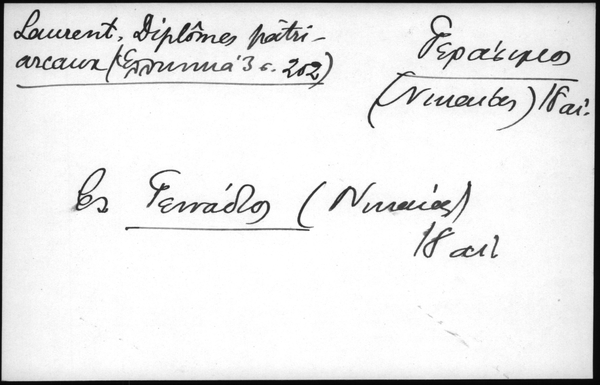 Laurent, Diplômes patri-
arcaux (Ἑλληνικά 3 σ. 202)
Γεράσιμος
(Νικαίας) 18 αἰ.
Γεννάδιος (Νικαίας)
18 αἰ